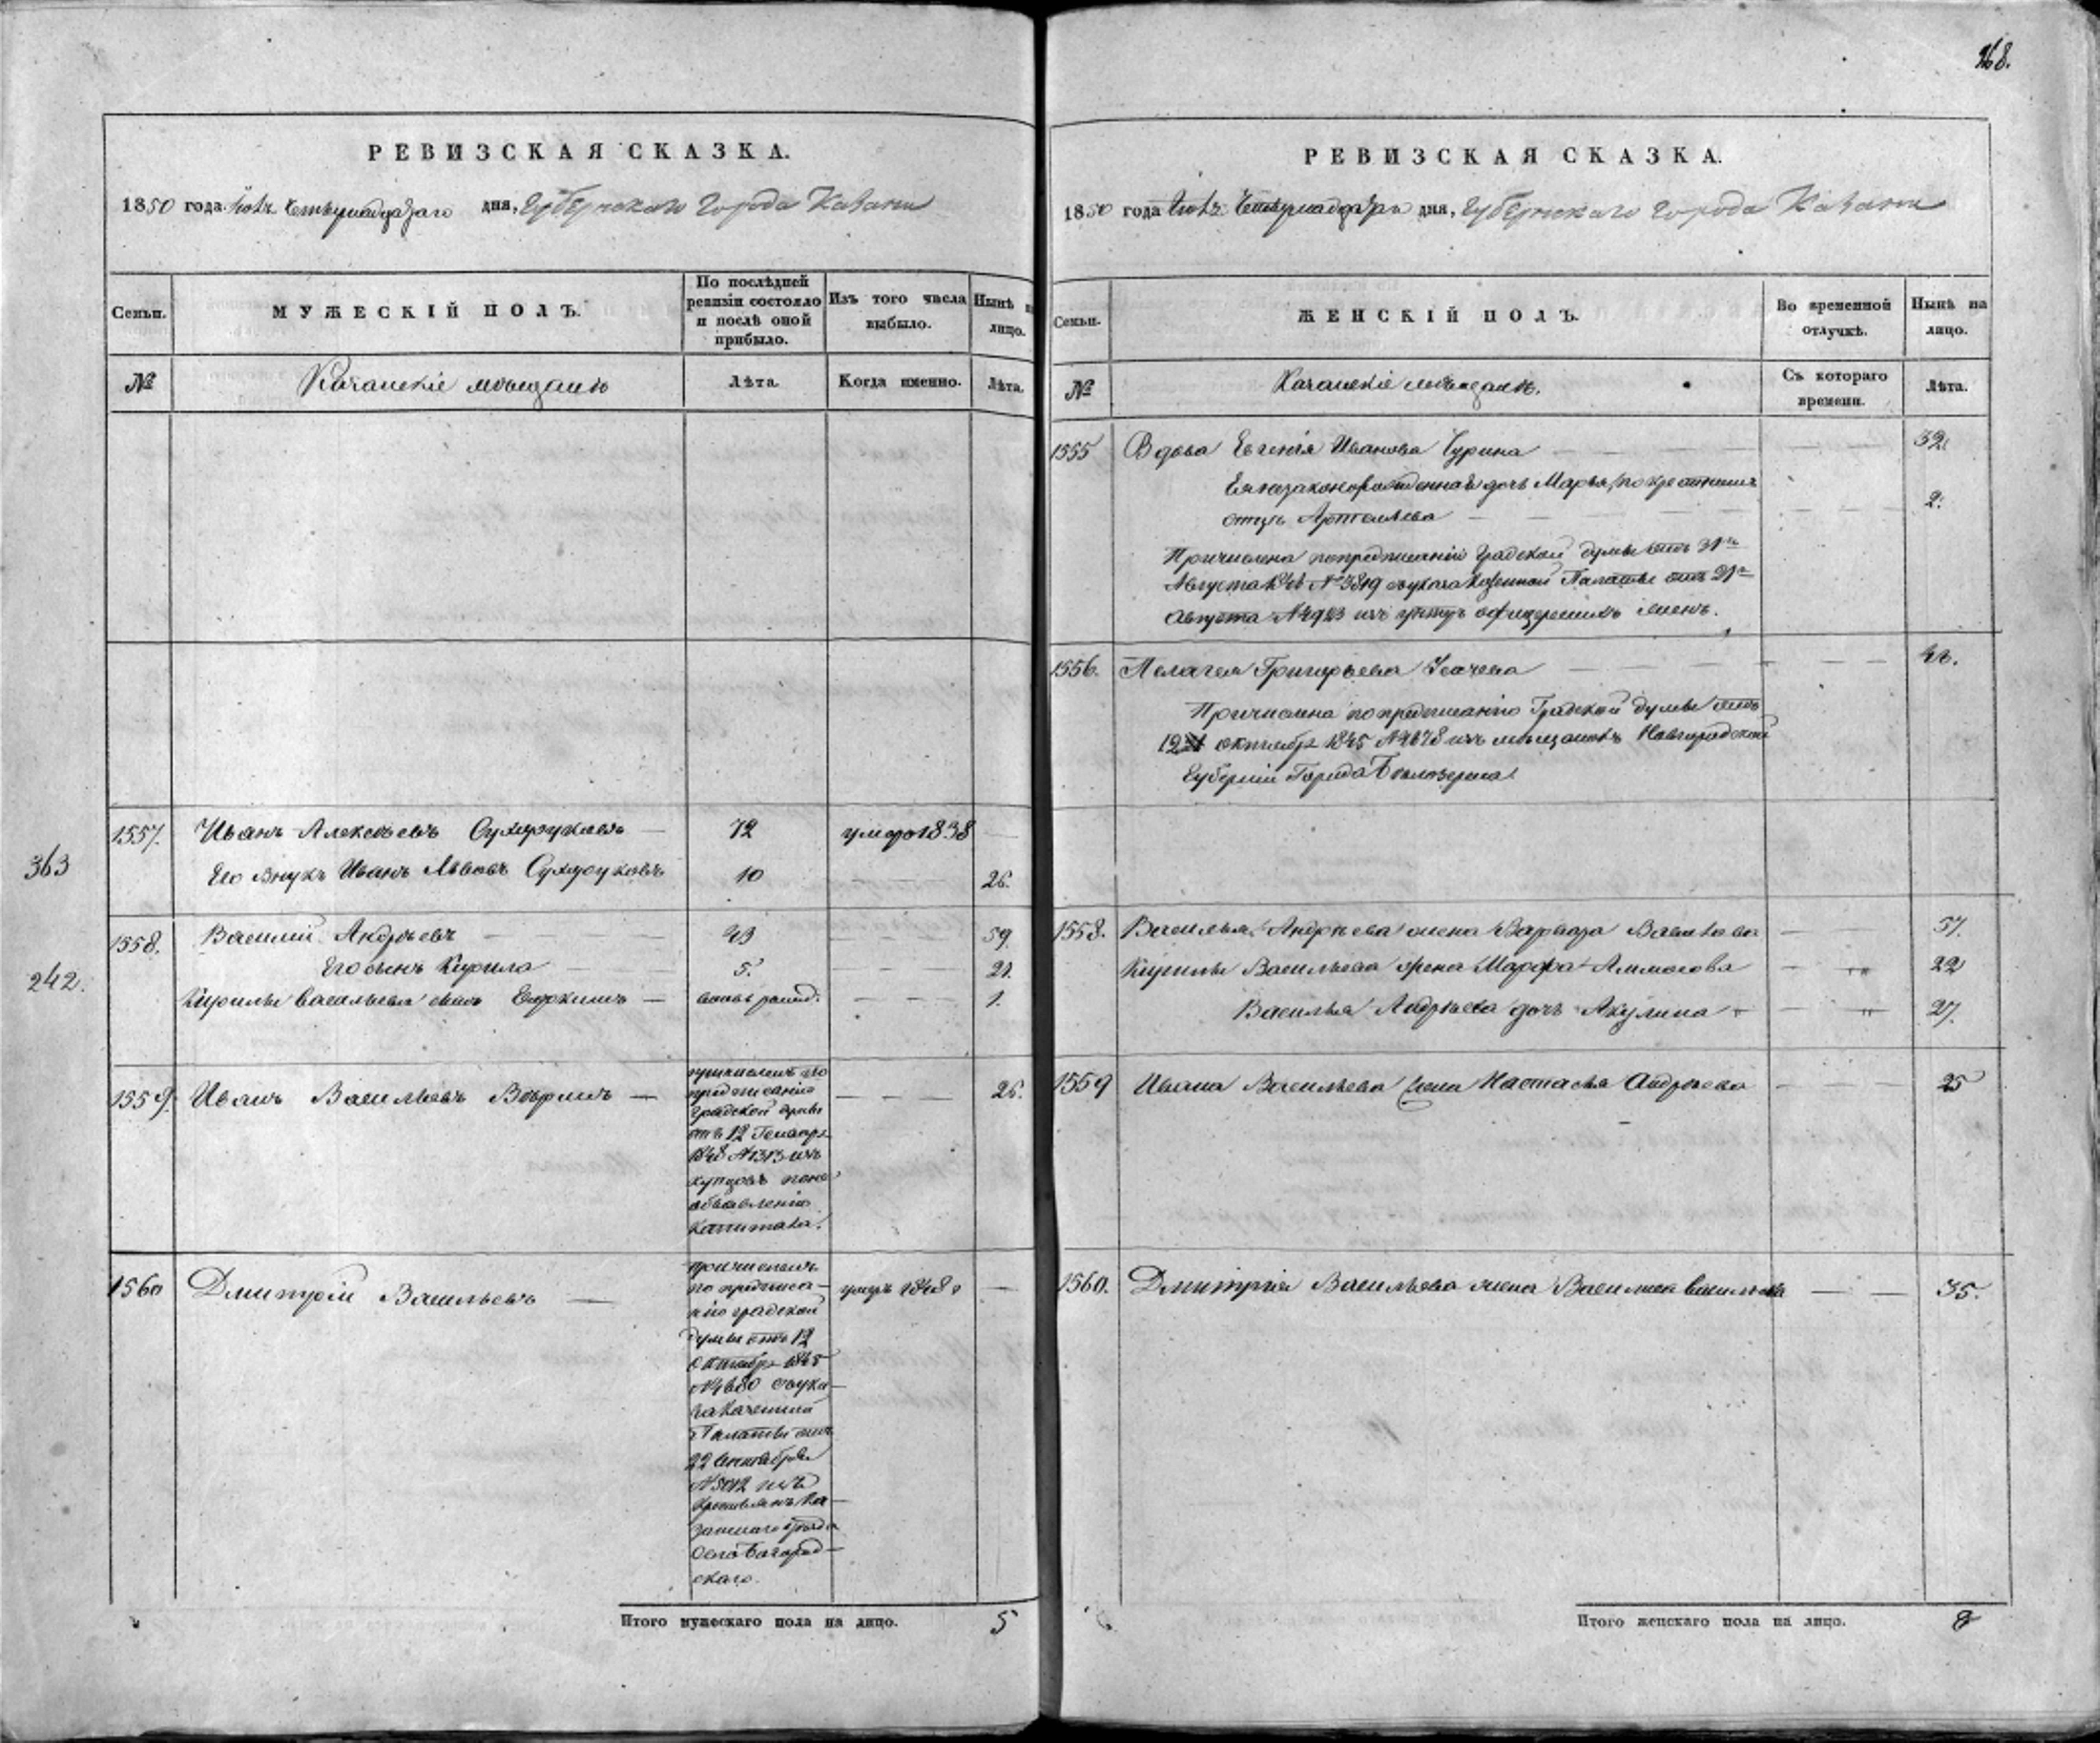 РЕВИЗСКАЯ СКАЗКА.
1850 года дня, Губернскаго города Казани
Семьи.
МУЖЕСКІЙ ПОЛЪ.
По послѣдней ревизіи состояло и послѣ оной прибыло.
Изъ того числа выбыло.
Нынѣ на лицо.
№
Казанскіе мѣщане
Лѣта.
Когда именно.
Лѣта.
1557. Иванъ Алексѣевъ 72 1838 —
363
Его внукъ Иванъ Львовъ 10 — — 26.
1558. Василій Андрѣевъ 43 — — 59.
Его сынъ Кирила 5. — — 21.
242.
Кирилы Васильева сынъ вновь рожд. — — — 1.
1559. Иванъ Васильевъ — — — — 26.
причисленъ по
предписанію
градской думы
отъ 12 Генваря
1848 № 1313 изъ
купцовъ по не
объявленію
капитала.
1560 Дмитрій Васильевъ — умеръ 1848 —
причисленъ
по предписа-
нію градской
думы отъ 12
Октября 1845
№ 4680 и ука-
за Казенной
Палаты отъ
22 Сентября
№ 5012 изъ
крестьянъ Ка-
занскаго уѣзда
Села Богород-
скаго.
Итого мужескаго пола на лицо. 5
268.
РЕВИЗСКАЯ СКАЗКА.
1850 года дня, Губернскаго города Казани
Семьи.
ЖЕНСКІЙ ПОЛЪ.
Во временной отлучкѣ.
Нынѣ на лицо.
№
Казанскіе мѣщане.
Съ котораго времени.
Лѣта.
1555 Вдова Евгенія Иванова — — — 32.
Ея незаконорожденная дочь Марья, по крестному
отцу — — — 2.
Причислена по предписанію Градской думы отъ 31го
Августа № 3819 и указа Казенной Палаты отъ 21го
Августа № 4923 изъ офицерскихъ женъ.
1556. Пелагея Григорьева — — —
Причислена по предписанію Градской думы отъ
12 октября 1845 № 4678 изъ мѣщанокъ Новгородской
Губерніи Города Бѣлозерска
1558. Василья Андрѣева жена Варвара — — 57.
Кирилы Васильева жена Марфа — „ 22
Василья Андрѣева дочь Акулина — „ 27.
1559 Ивана Васильева жена Настасья Андрѣева — — 25
1560. Дмитрія Васильева жена Василиса Васильева — — 35.
Итого женскаго пола на лицо. 8